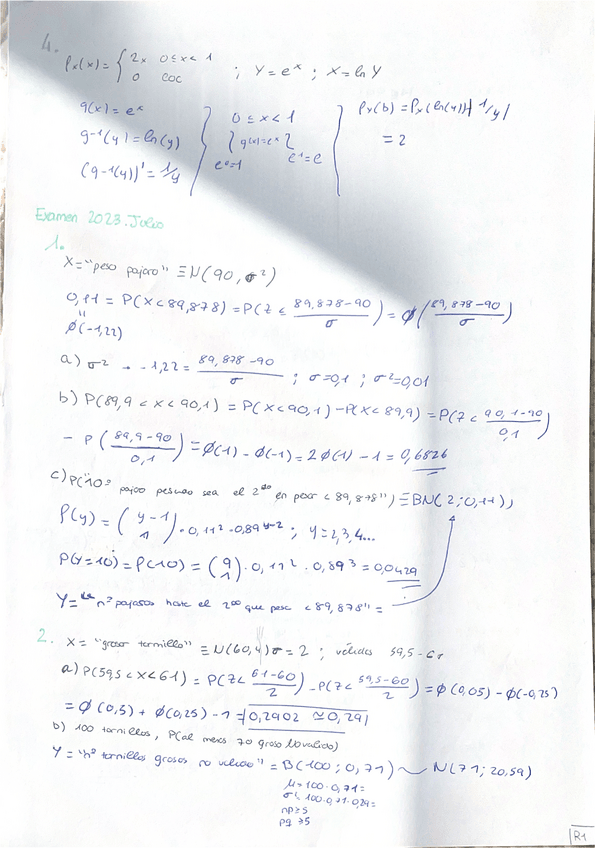 4.
Px(x) = { 2x 0 ≤ x < 1 ; Y = e^x ; X = ln Y
0 coc
g(x) = e^x
g-1(y) = ln(y)
(g-1(y))' = 1/y
0 ≤ x < 1
{ g(x) = e^x }
e^0 = 1 e^1 = e
Px(b) = Px(ln(y)) | 1/y |
= 2
Examen 2023. Julio
1.
X = "peso pajaro" ≡ N(90, σ²)
0,11 = P(X < 89,878) = P(Z < (89,878 - 90)/σ) = Φ((89,878 - 90)/σ)
"
Φ(-1,22)
a) σ² → -1,22 = (89,878 - 90)/σ ; σ = 0,1 ; σ² = 0,01
b) P(89,9 < x < 90,1) = P(X < 90,1) - P(X < 89,9) = P(Z < (90,1 - 90)/0,1)
- P((89,9 - 90)/0,1) = Φ(1) - Φ(-1) = 2Φ(1) - 1 = 0,6826
c) P("10º pajaro pesado sea el 2do en pesar < 89,878") ≡ BN(2; 0,11),
P(y) = (y-1 1) · 0,11² · 0,89^y-2 ; Y = 2,3,4...
P(Y = 10) = P(10) = (9 1) · 0,11² · 0,89³ = 0,0429
Y = nº pajaros hasta el 2do que pese < 89,878" =
2.
X = "grosor tornillo" ≡ N(60, 4) σ = 2 ; válidos 59,5 - 61
a) P(59,5 < x < 61) = P(Z < (61 - 60)/2) - P(Z < (59,5 - 60)/2) = Φ(0,05) - Φ(-0,25)
= Φ(0,5) + Φ(0,25) - 1 = 0,2902 ≃ 0,29
b) 100 tornillos, P(al menos 70 grosor No valido)
Y = "nº tornillos grosos no valido" = B(100; 0,71) ~ N(71; 20,59)
μ = 100 · 0,71 =
σ² 100 · 0,71 · 0,29 =
np ≥ 5
pq ≥ 5
R1